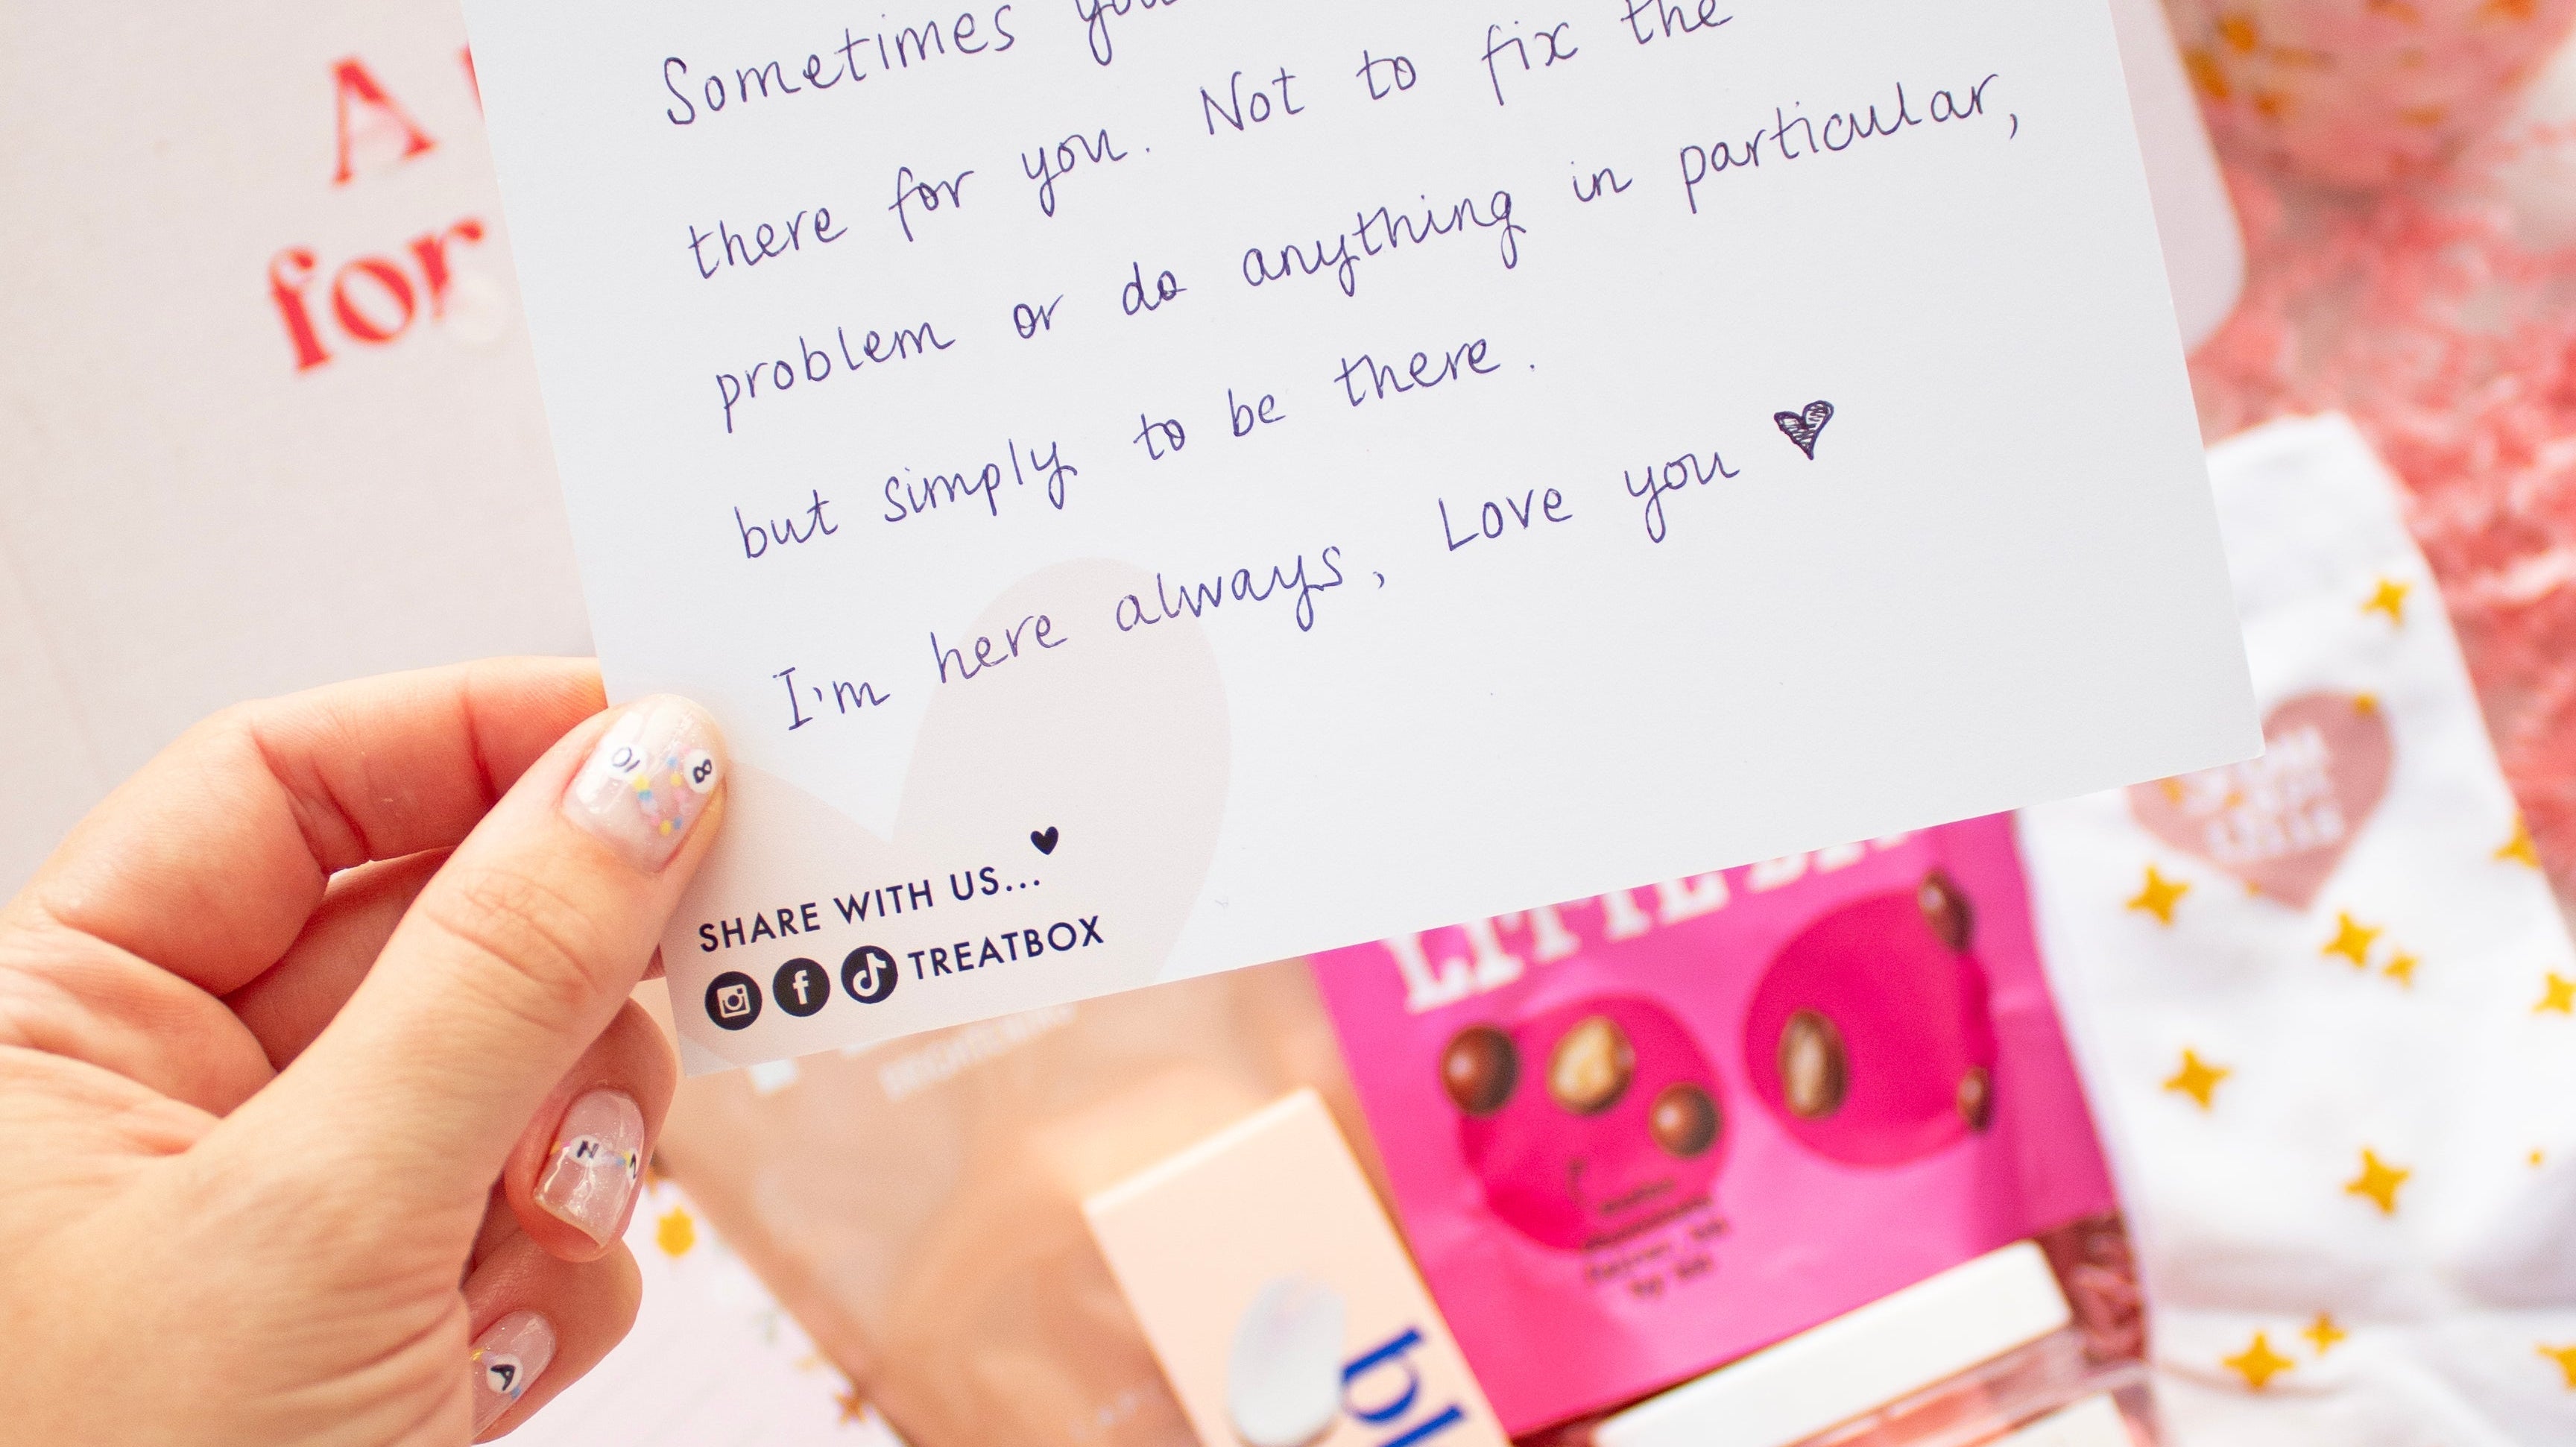 Sometimes you
there for you. Not to fix the
problem or do anything in particular,
but simply to be there.
I'm here always, Love you
SHARE WITH US...
TREATBOX
A
for
LITTLE
bl
10 8
N
A